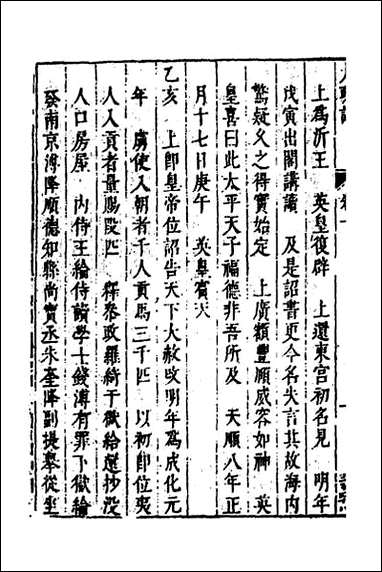 上爲沂王　英皇復辟　上還東宮初名見　明年
戊寅出閣講讀　及是詔書更今名失言其故海内
驚疑久之得實始定　上廣額豐頤威容如神　英
皇喜曰此太平天子福德非吾所及　天順八年正
月十七日庚午　英皇賓天
乙亥　上即皇帝位詔告天下大赦改明年爲成化元
年　虜使入朝者千人貢馬三千匹　以初即位夷
人入貢者量賜段匹　釋參政羅綺于獄給還抄没
人口房屋　内侍王綸侍讀學士錢溥有罪下獄綸
發南京溥降順德知縣尚寳丞朱奎降副提舉從坐